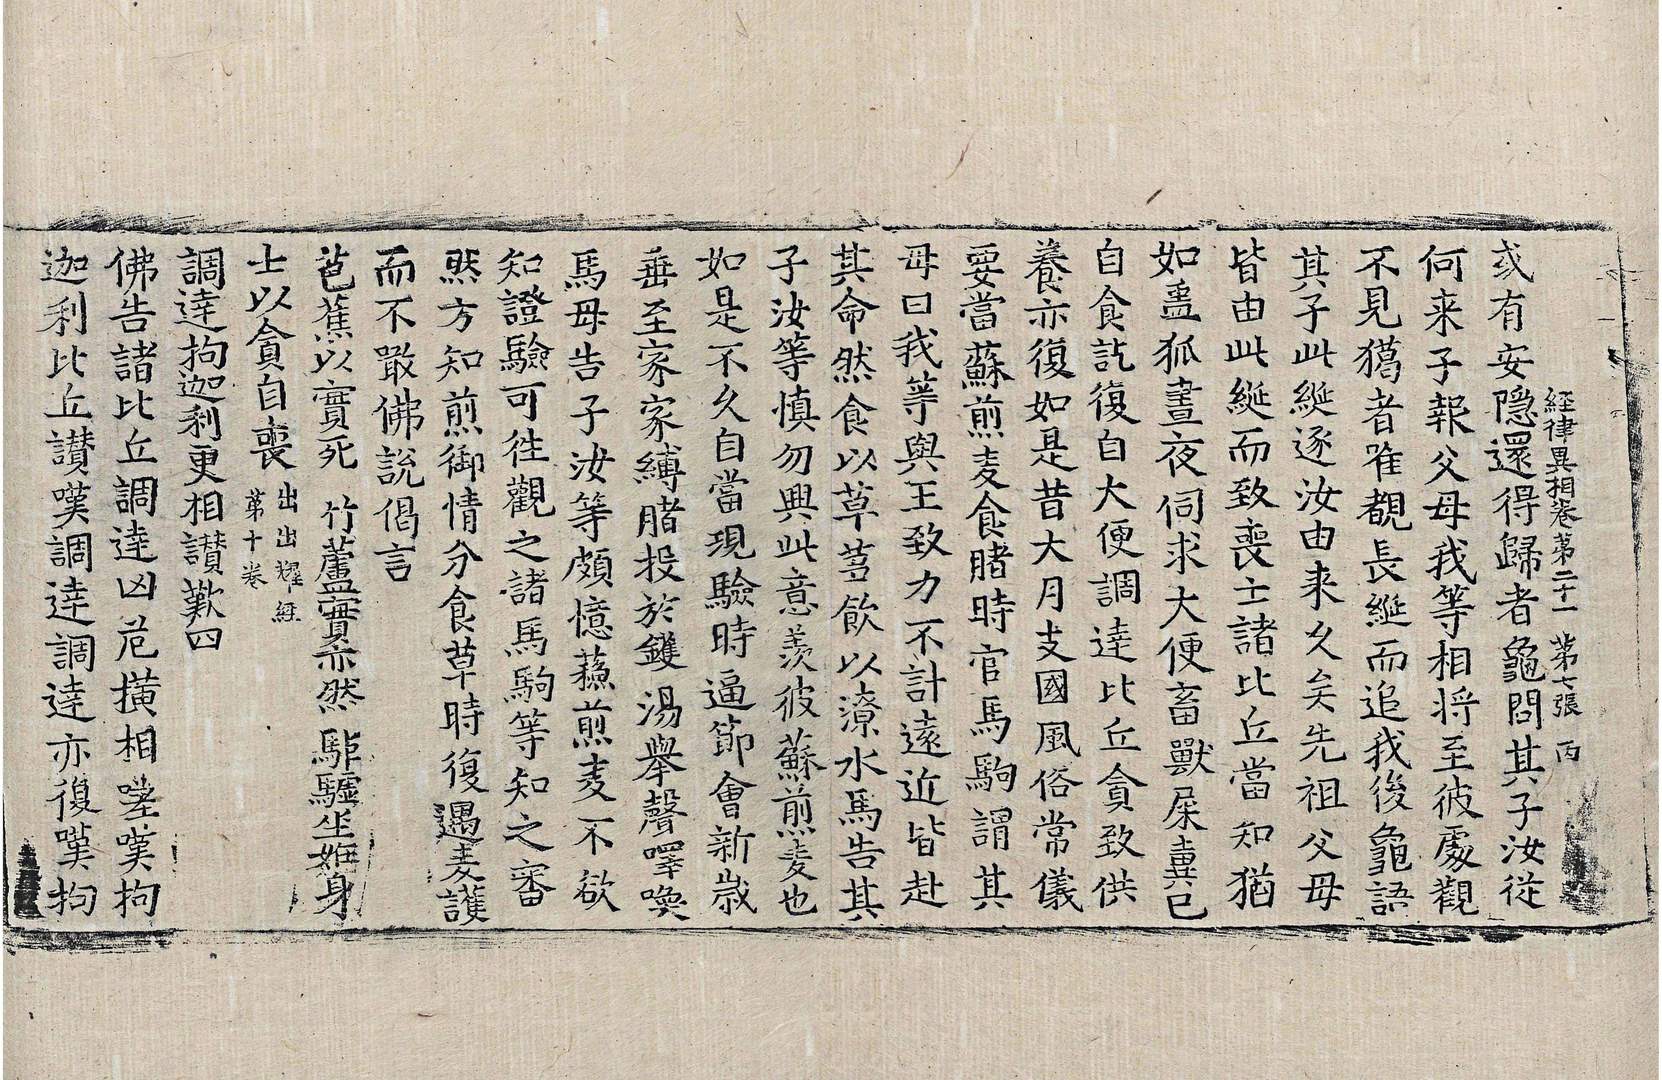 經律異相卷第二十一 第七張 丙
或有安隱還得歸者龜問其子汝從
何来子報父母我等相将至彼處觀
不見獦者唯覩長綖而追我後龜語
其子此綖逐汝由来久矣先祖父母
皆由此綖而致喪士諸比丘當知猶
如蠱狐晝夜伺求大便畜獸屎糞已
自食訖復自大便調達比丘貪致供
養亦復如是昔大月支國風俗常儀
要當蘇煎麦食賭時官馬駒謂其
母曰我等與王致力不計遠近皆赴
其命然食以草蒭飲以潦水馬告其
子汝等慎勿興此意羡彼蘇煎麦也
如是不久自當現驗時逼節會新歳
垂至家家縛賭投於鑊湯舉聲嘷喚
馬母告子汝等頗憶蘓煎麦不欲
知證驗可徃觀之諸馬駒等知之審
然方知煎御情分食草時復遇麦護
而不噉佛説偈言
芭蕉以實死 竹蘆實亦然 駏驉坐姙身
士以貪自喪 出出耀經 第十卷
調達拘迦利更相讃歎四
佛告諸比丘調達凶危横相嗟嘆拘
迦利比丘讃嘆調達調達亦復嘆拘